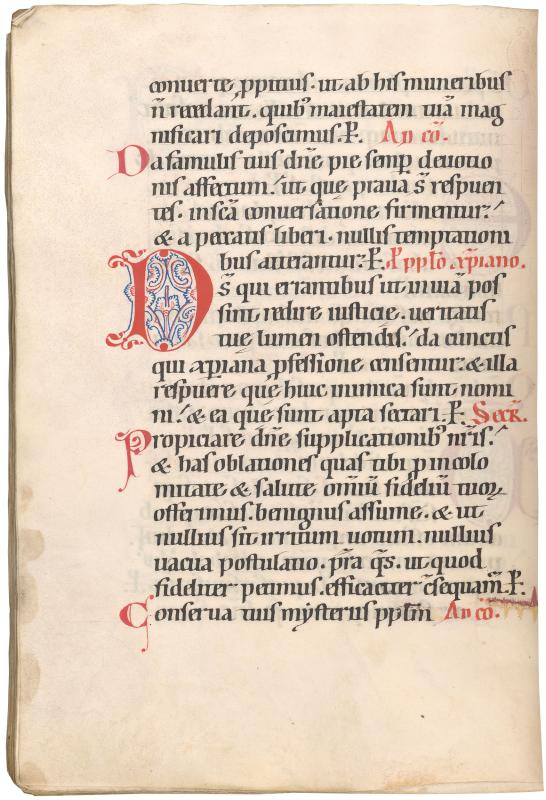 conuerte ꝓpitius. ut ab his muneribus
n̄ recedant̄. quib᷒ maiestatem tuā mag
nificari deposcimus. P̄. An cō.
Da famulis tuis dn̄e pie semꝑ deuotio
nis affectum.' ut que praua s̄ respuen
tes. in scā conuersatione firmentur.'
& a peccatis liberi. nullis temptationi
bus atterantur. P̄. P̄ ppl̄o xp̄iano.
Ds̄ qui errantibus ut in uiā pos
sint redire iusticie. ueritatis
tue lumen ostendis.' da cunctis
qui xp̄iana ꝓfessione censentur.' & illa
respuere que huic inimica sunt nomi
ni.' & ea que sunt apta sectari. P̄. Secr̄.
Propiciare dn̄e supplicationib᷒ nr̄is.'
& has oblationes quas tibi ꝓ incolo
mitate & salute om̄iū fideliū tuoꝝ
offerimus. benignus assume. & ut
nullius sit irritum uotum. nullius
uacua postulatio. p̄ra q̄s. ut quod
fideliter petimus. efficaciter c̄sequam̄. P̄.
Conserua tuis mysteriis ppl̄m An cō.